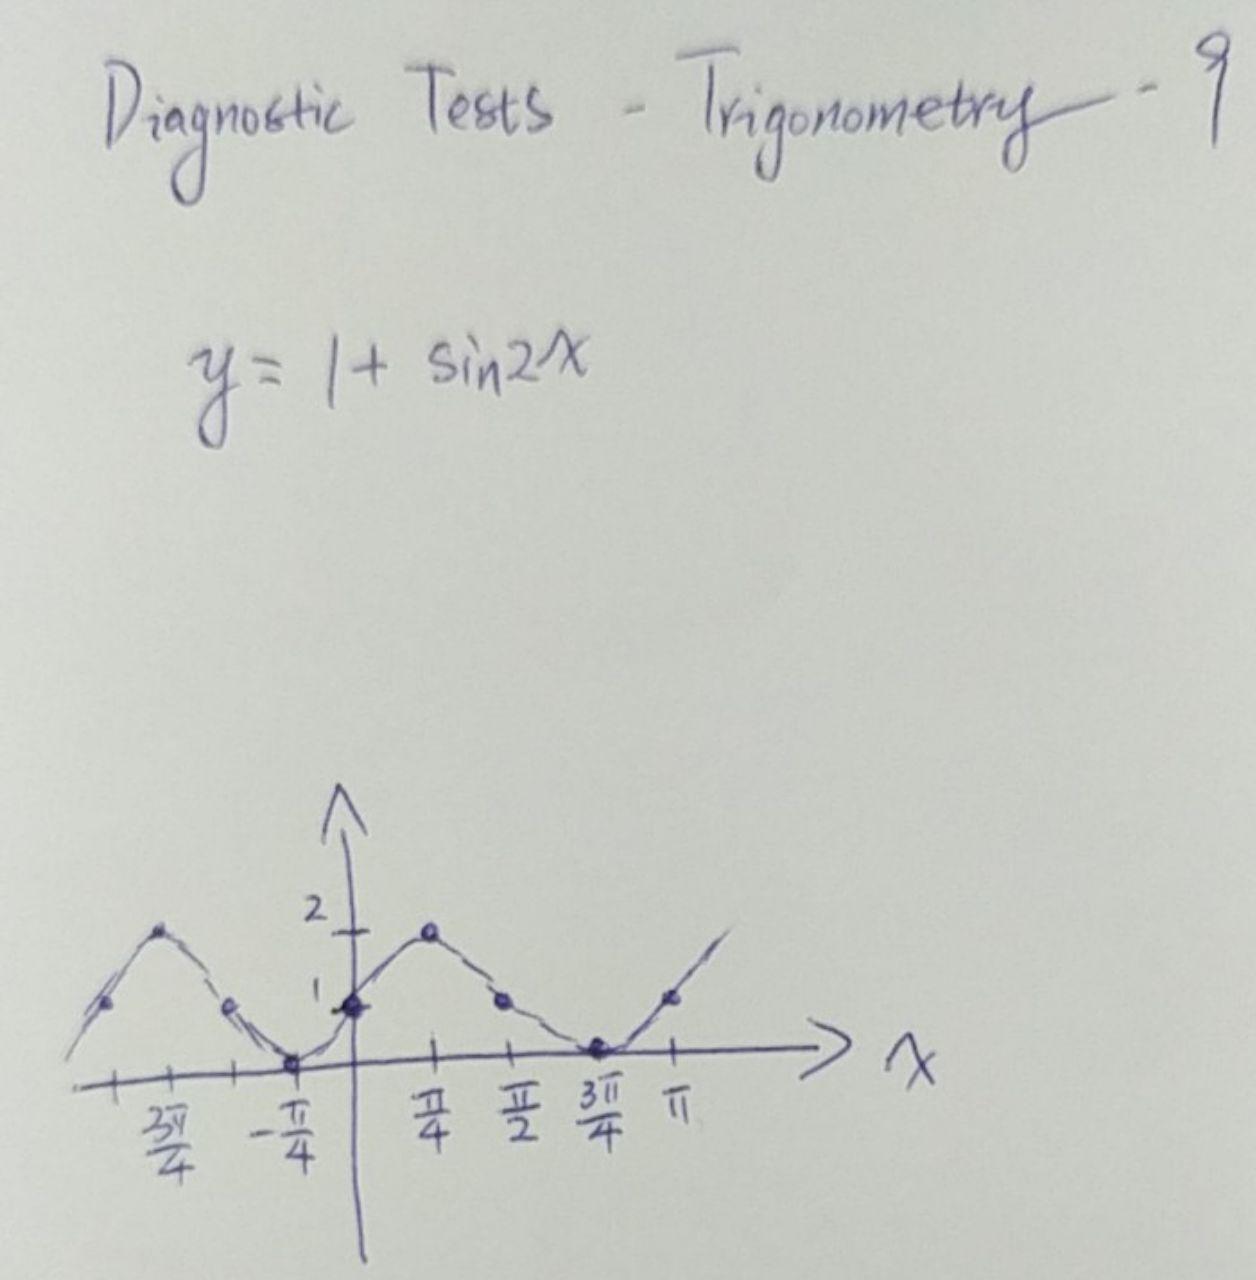 Diagnostic Tests - Trigonometry - 9
y = 1 + sin2x
2
1
x
3π/4 -π/4 π/4 π/2 3π/4 π